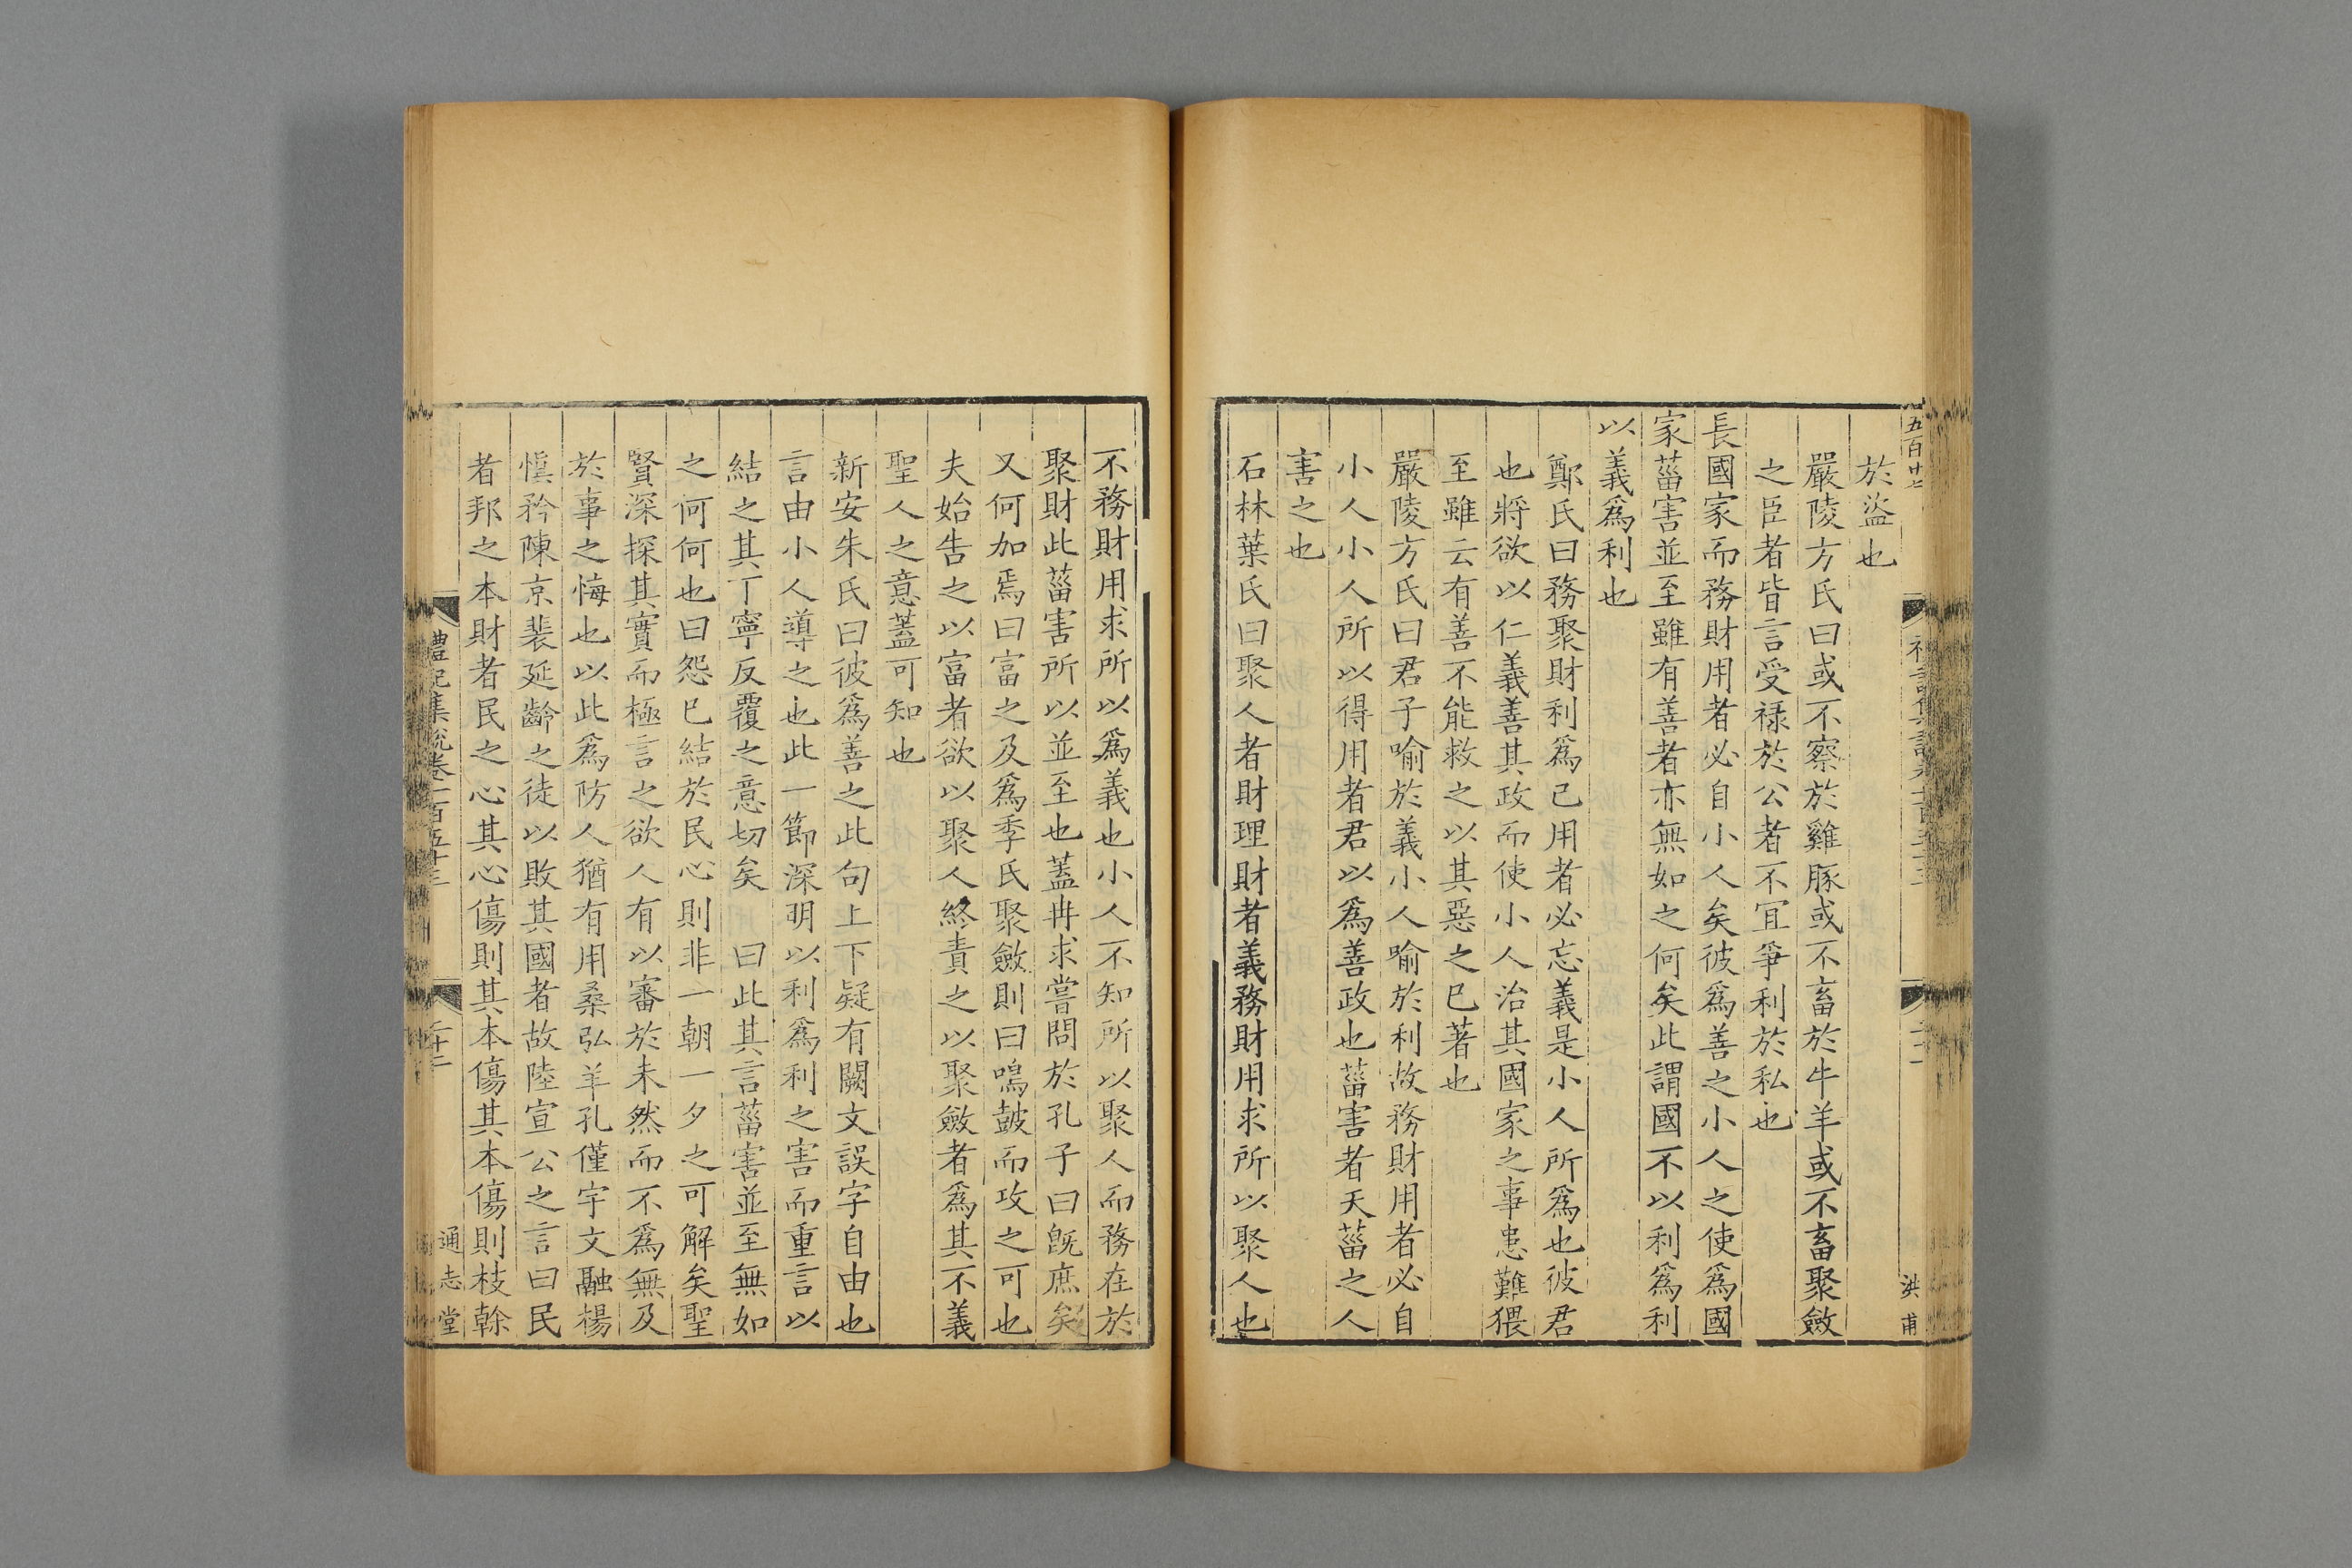 五百廿七
洪甫
於盜也
嚴陵方氏曰或不察於雞豚或不畜於牛羊或不畜聚斂
之臣者皆言受祿於公者不宜爭利於私也
長國家而務財用者必自小人矣彼爲善之小人之使爲國
家菑害並至雖有善者亦無如之何矣此謂國不以利爲利
以義爲利也
鄭氏曰務聚財利爲己用者必忘義是小人所爲也彼君
也將欲以仁義善其政而使小人治其國家之事患難猥
至雖云有善不能救之以其惡之已著也
嚴陵方氏曰君子喻於義小人喻於利故務財用者必自
小人小人所以得用者君以爲善政也菑害者天菑之人
害之也
石林葉氏曰聚人者財理財者義務財用求所以聚人也
不務財用求所以爲義也小人不知所以聚人而務在於
聚財此菑害所以並至也蓋冉求嘗問於孔子曰旣庶矣
又何加焉曰富之及爲季氏聚斂則曰鳴鼓而攻之可也
夫始告之以富者欲以聚人終責之以聚斂者爲其不義
聖人之意蓋可知也
新安朱氏曰彼爲善之此句上下疑有闕文誤字自由也
言由小人導之也此一節深明以利爲利之害而重言以
結之其丁寧反覆之意切矣 曰此其言菑害並至無如
之何何也曰怨已結於民心則非一朝一夕之可解矣聖
賢深探其實而極言之欲人有以審於未然而不爲無及
於事之悔也以此爲防人猶有用桑弘羊孔僅宇文融楊
愼矜陳京裴延齡之徒以敗其國者故陸宣公之言曰民
者邦之本財者民之心其心傷則其本傷其本傷則枝幹
禮記集說卷一百五十三
二十二
通志堂